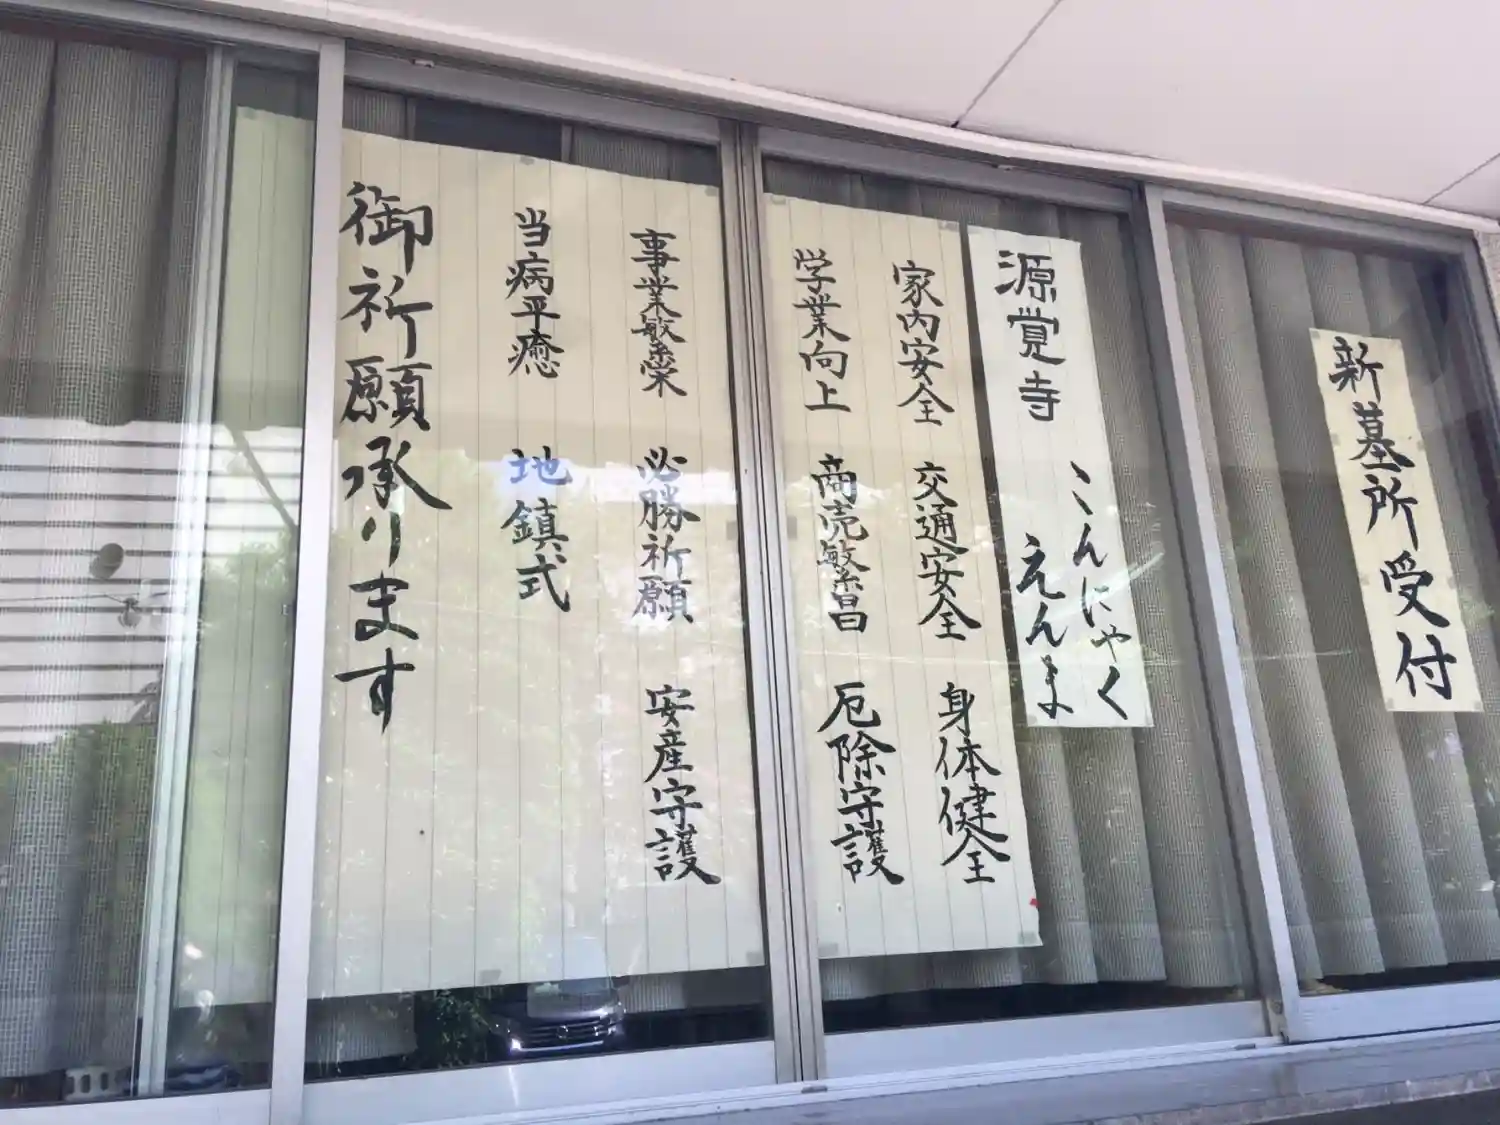 新墓所受付
源覚寺 こんにゃく
えんま
家内安全 交通安全 身体健全
学業向上 商売繁昌 厄除守護
事業繁栄 必勝祈願 安産守護
当病平癒 地鎮式
御祈願承ります